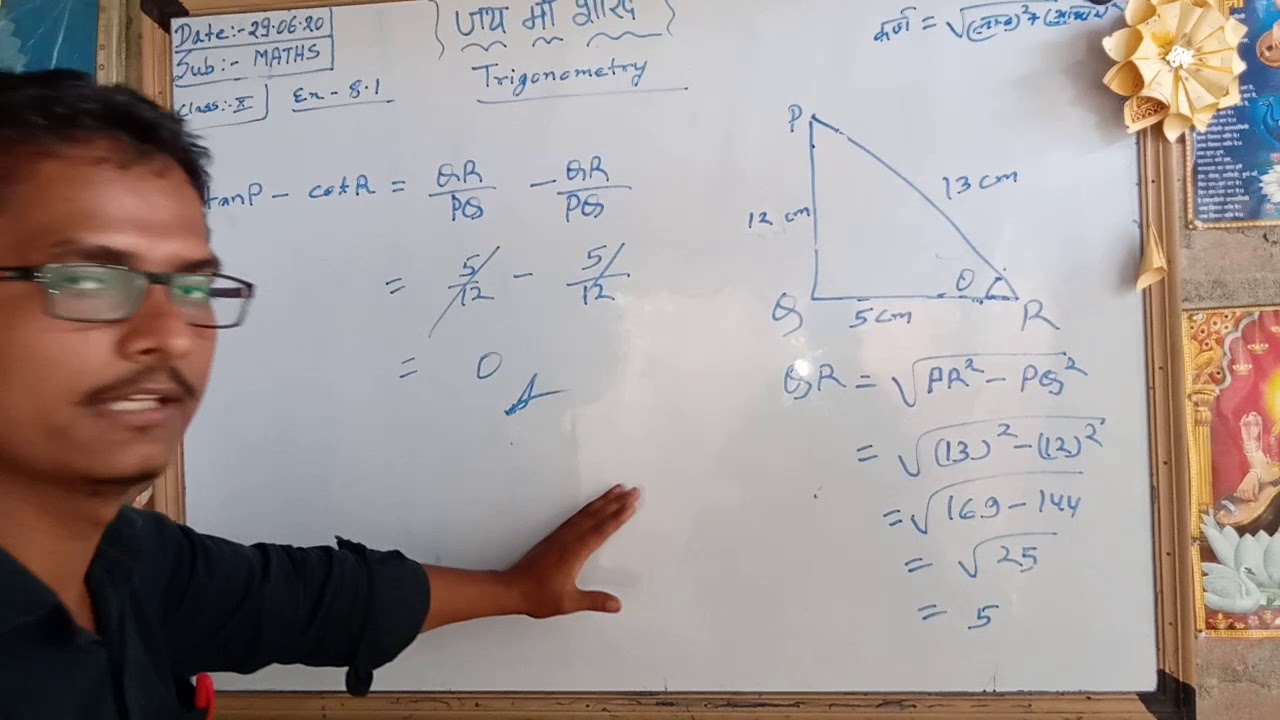 Date:- 29.06.20
Sub:- MATHS
Class:- X
Ex - 8.1
जय माँ शारदे
Trigonometry
कर्ण = √(लम्ब)² + (आधार)²
tanP - cotR = QR/PQ - QR/PQ
= 5/12 - 5/12
= 0
P
12 cm
13 cm
Q
5 cm
θ
R
QR = √PR² - PQ²
= √(13)² - (12)²
= √169 - 144
= √25
= 5